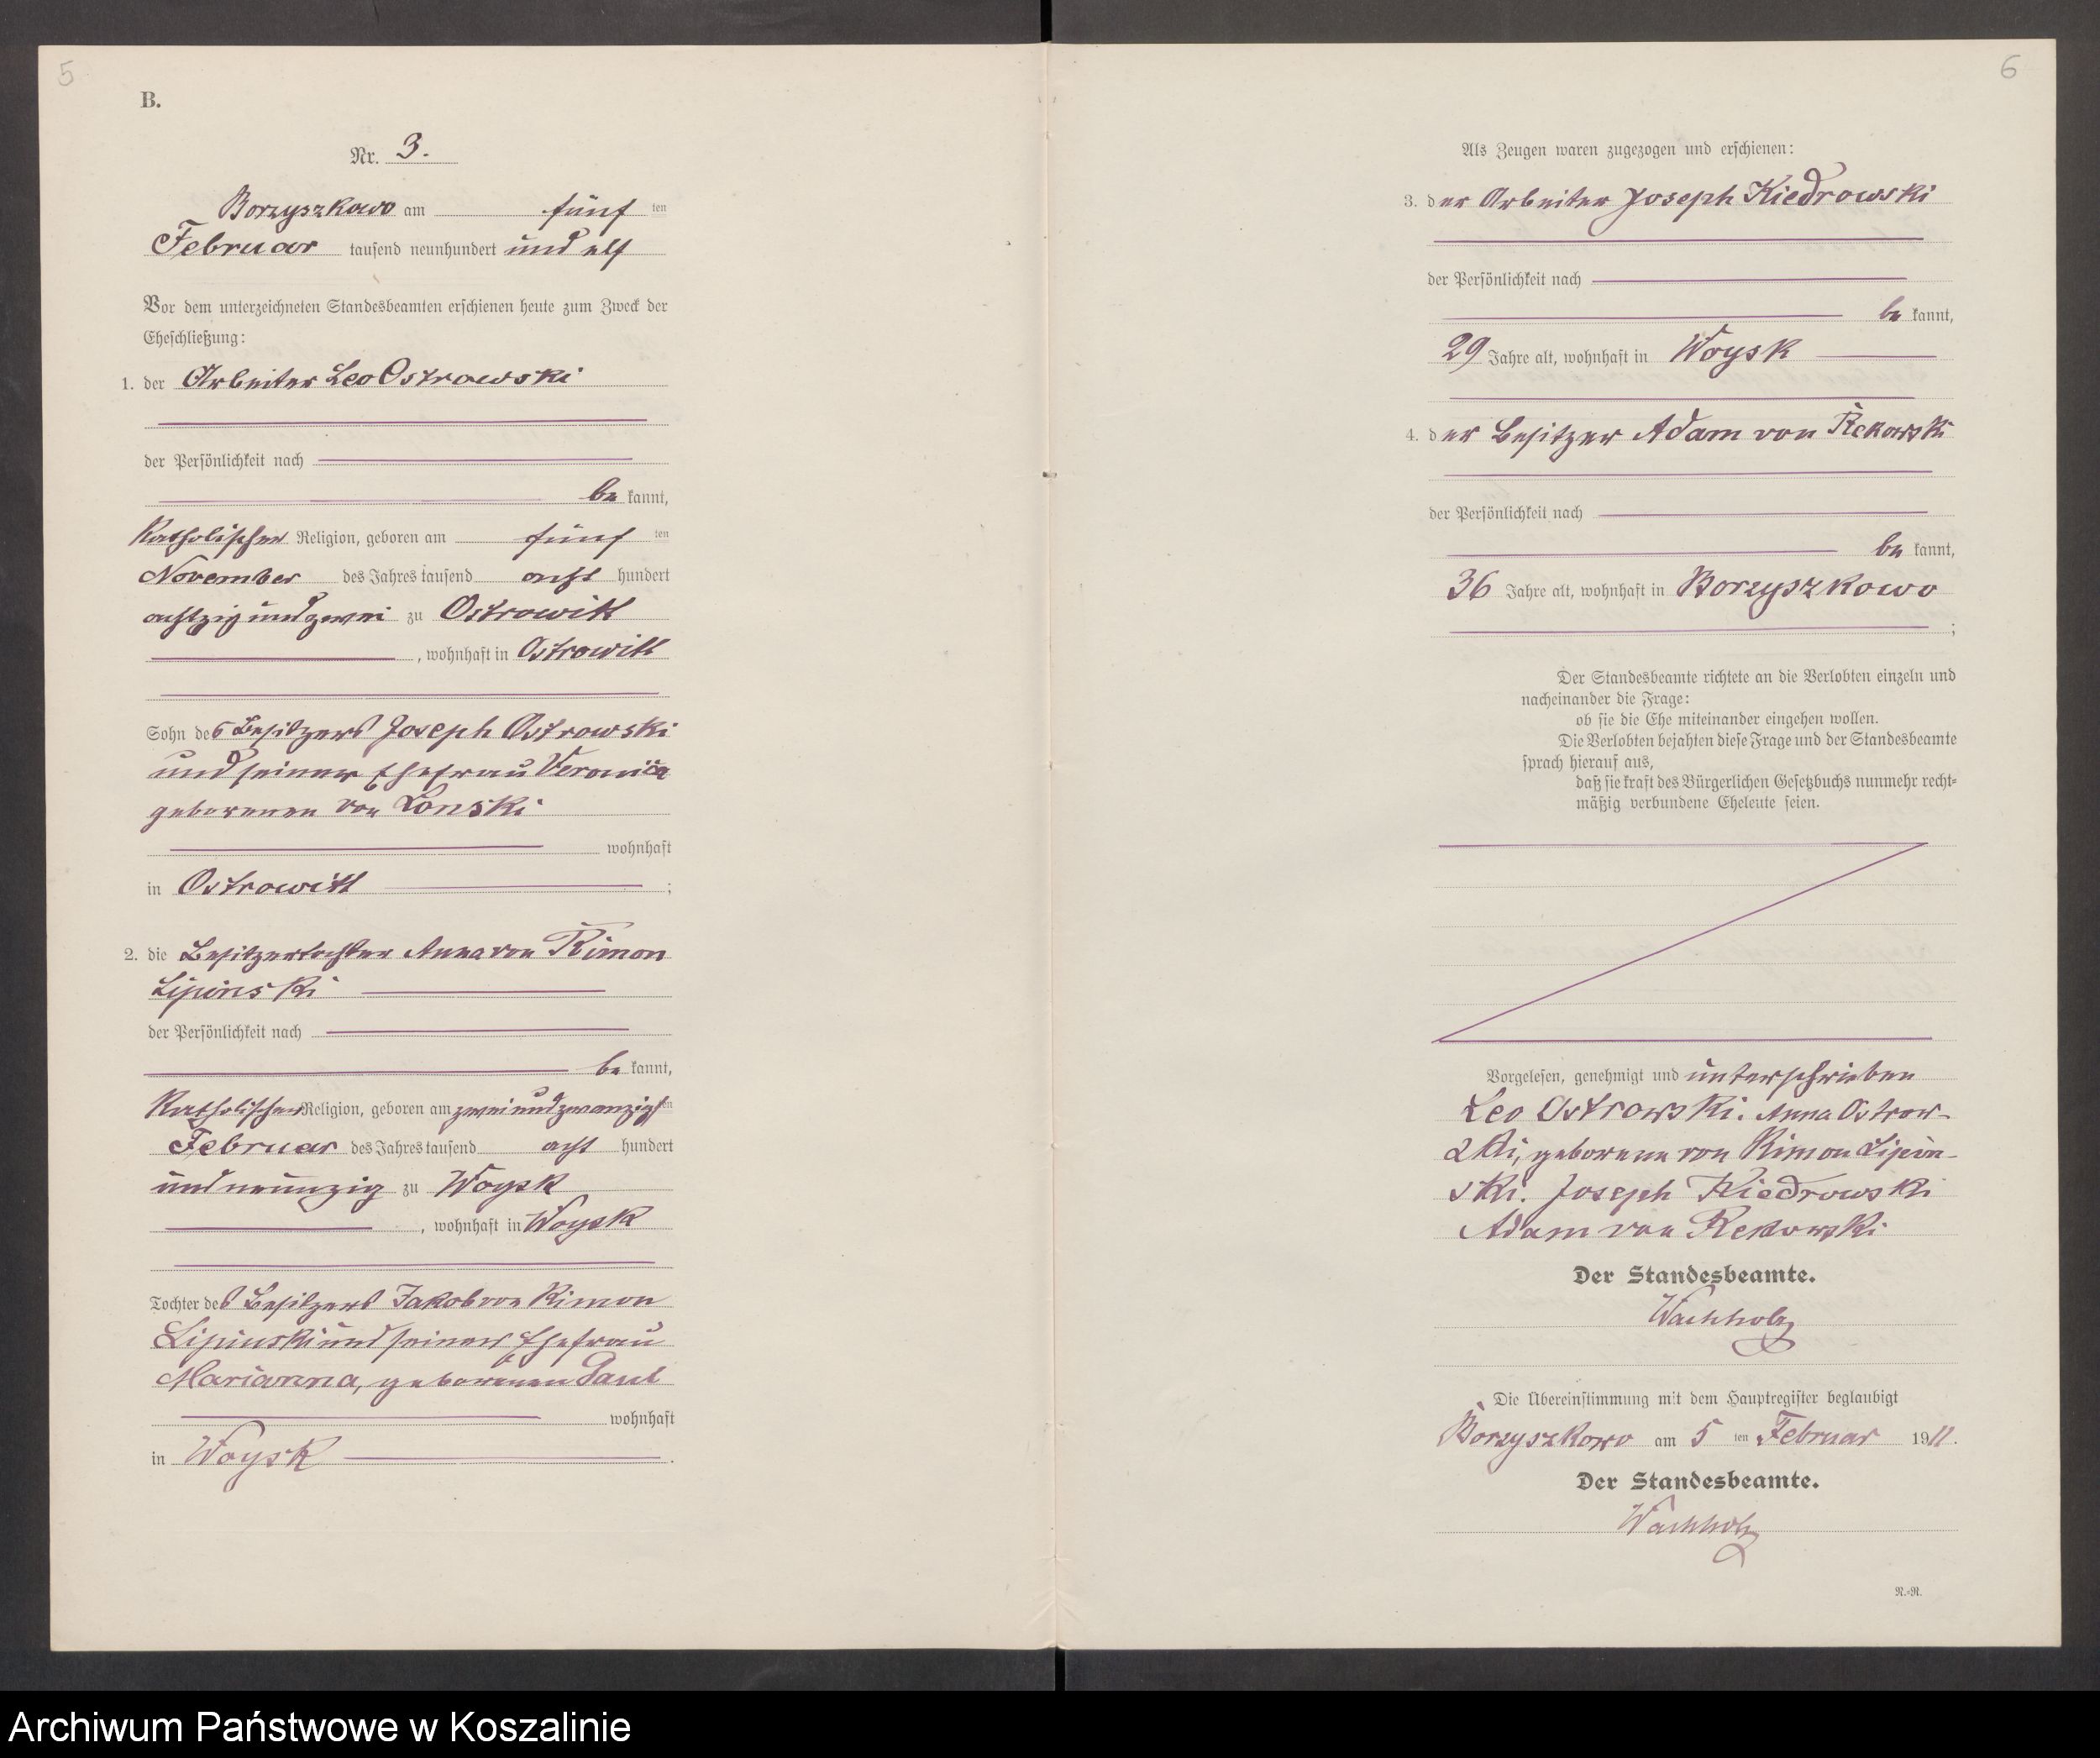 5
B.
Nr. 3.
Borzyszkowo am fünf ten
Februar tausend neunhundert und elf
Vor dem unterzeichneten Standesbeamten erschienen heute zum Zweck der
Eheschließung:
1. der Arbeiter Leo Ostrowski
der Persönlichkeit nach
be kannt,
katholischer Religion, geboren am fünf ten
November des Jahres tausend acht hundert
achtzig und zwei zu Ostrowitt
, wohnhaft in Ostrowitt
Sohn des Besitzers Joseph Ostrowski
und seiner Ehefrau Veronica
geborenen von Lonski
wohnhaft
in Ostrowitt ;
2. die Besitzertochter Anna von Kimon
Lipinski
der Persönlichkeit nach
be kannt,
katholischer Religion, geboren am zwei und zwanzigsten
Februar des Jahres tausend acht hundert
und neunzig zu Woysk
, wohnhaft in Woysk
Tochter des Besitzers Jakob von Kimon
Lipinski und seiner Ehefrau
Marianna, geborenen Paul
wohnhaft
in Woysk .
6
Als Zeugen waren zugezogen und erschienen:
3. der Arbeiter Joseph Kiedrowski
der Persönlichkeit nach
be kannt,
29 Jahre alt, wohnhaft in Woysk
4. der Besitzer Adam von Rekowski
der Persönlichkeit nach
be kannt,
36 Jahre alt, wohnhaft in Borzyszkowo
;
Der Standesbeamte richtete an die Verlobten einzeln und
nacheinander die Frage:
ob sie die Ehe miteinander eingehen wollen.
Die Verlobten bejahten diese Frage und der Standesbeamte
sprach hierauf aus,
daß sie kraft des Bürgerlichen Gesetzbuchs nunmehr recht-
mäßig verbundene Eheleute seien.
Vorgelesen, genehmigt und unterschrieben
Leo Ostrowski. Anna Ostrow-
ski, geborene von Kimon Lipin-
ski. Joseph Kiedrowski
Adam von Rekowski
Der Standesbeamte.
Wachholz
Die Übereinstimmung mit dem Hauptregister beglaubigt
Borzyszkowo am 5 ten Februar 1911.
Der Standesbeamte.
Wachholz
N.-N.
Archiwum Państwowe w Koszalinie